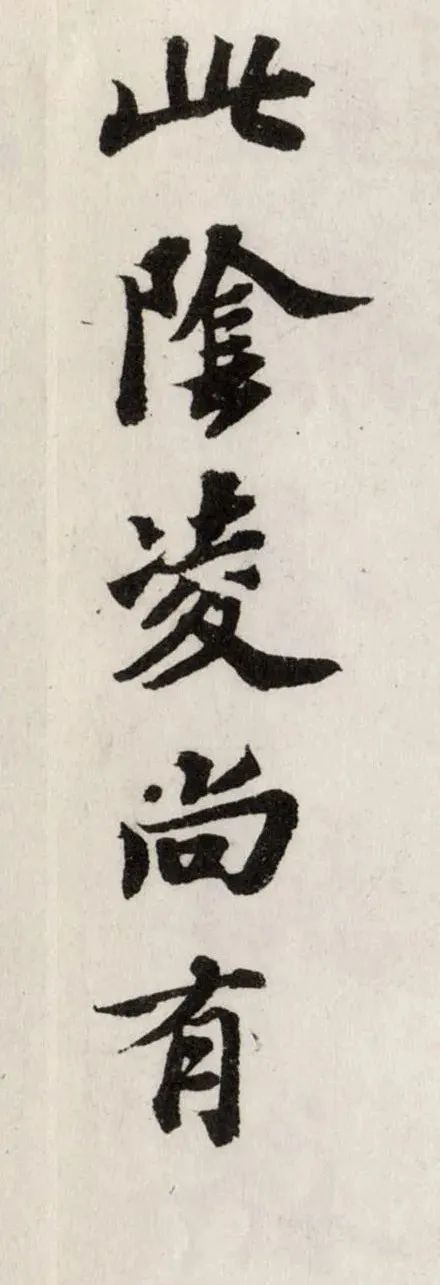 此陰凌尚有